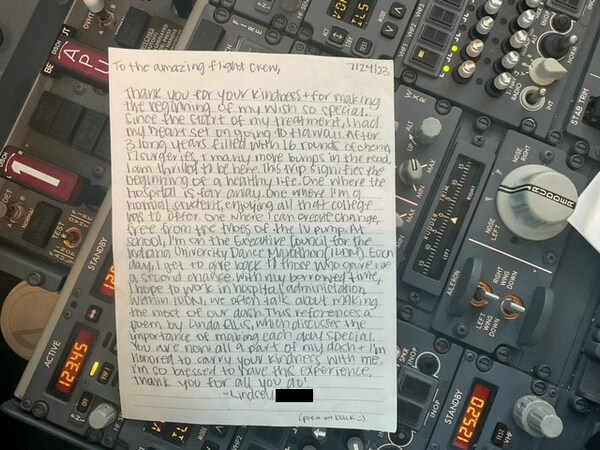 To the amazing flight crew,
7/24/23
Thank you for your kindness + for making
the beginning of my wish so special.
Since the start of my treatment, I had
my heart set on going to Hawaii. After
3 long years filled with 16 rounds of chemo,
17 surgeries, + many more bumps in the road,
I am thrilled to be here. This trip signifies the
beginning of a healthy life. One where the
hospital is far away. One where I'm a
normal student, enjoying all that college
has to offer. One where I can create change,
free from the tubes of the IV pump. At
school, I'm on the Executive Council for the
Indiana University Dance Marathon (IUDM). Each
day, I get to give back to those who gave me
a second chance. With my borrowed time,
I hope to work in hospital administration.
Within IUDM, we often talk about making
the most of our dash. This references a
poem by Linda Ellis, which discusses the
importance of making each day special.
You are now all a part of my dash + I'm
honored to carry your kindness with me.
I'm so blessed to have this experience.
Thank you for all you do!
-Lindsey
(poem on back :)
APU
1
DET
TEST
ACTIVE
123.45
STANDBY
VHF 2
TEST
STANDBY
125.20
VHF
INOP
INOP
RUDDER
NOSE RIGHT
NOSE LEFT
RUDDER
AILERON
LEFT WING DOWN
RIGHT WING DOWN
STAB TRIM
INT
MAX
MIN
ALT